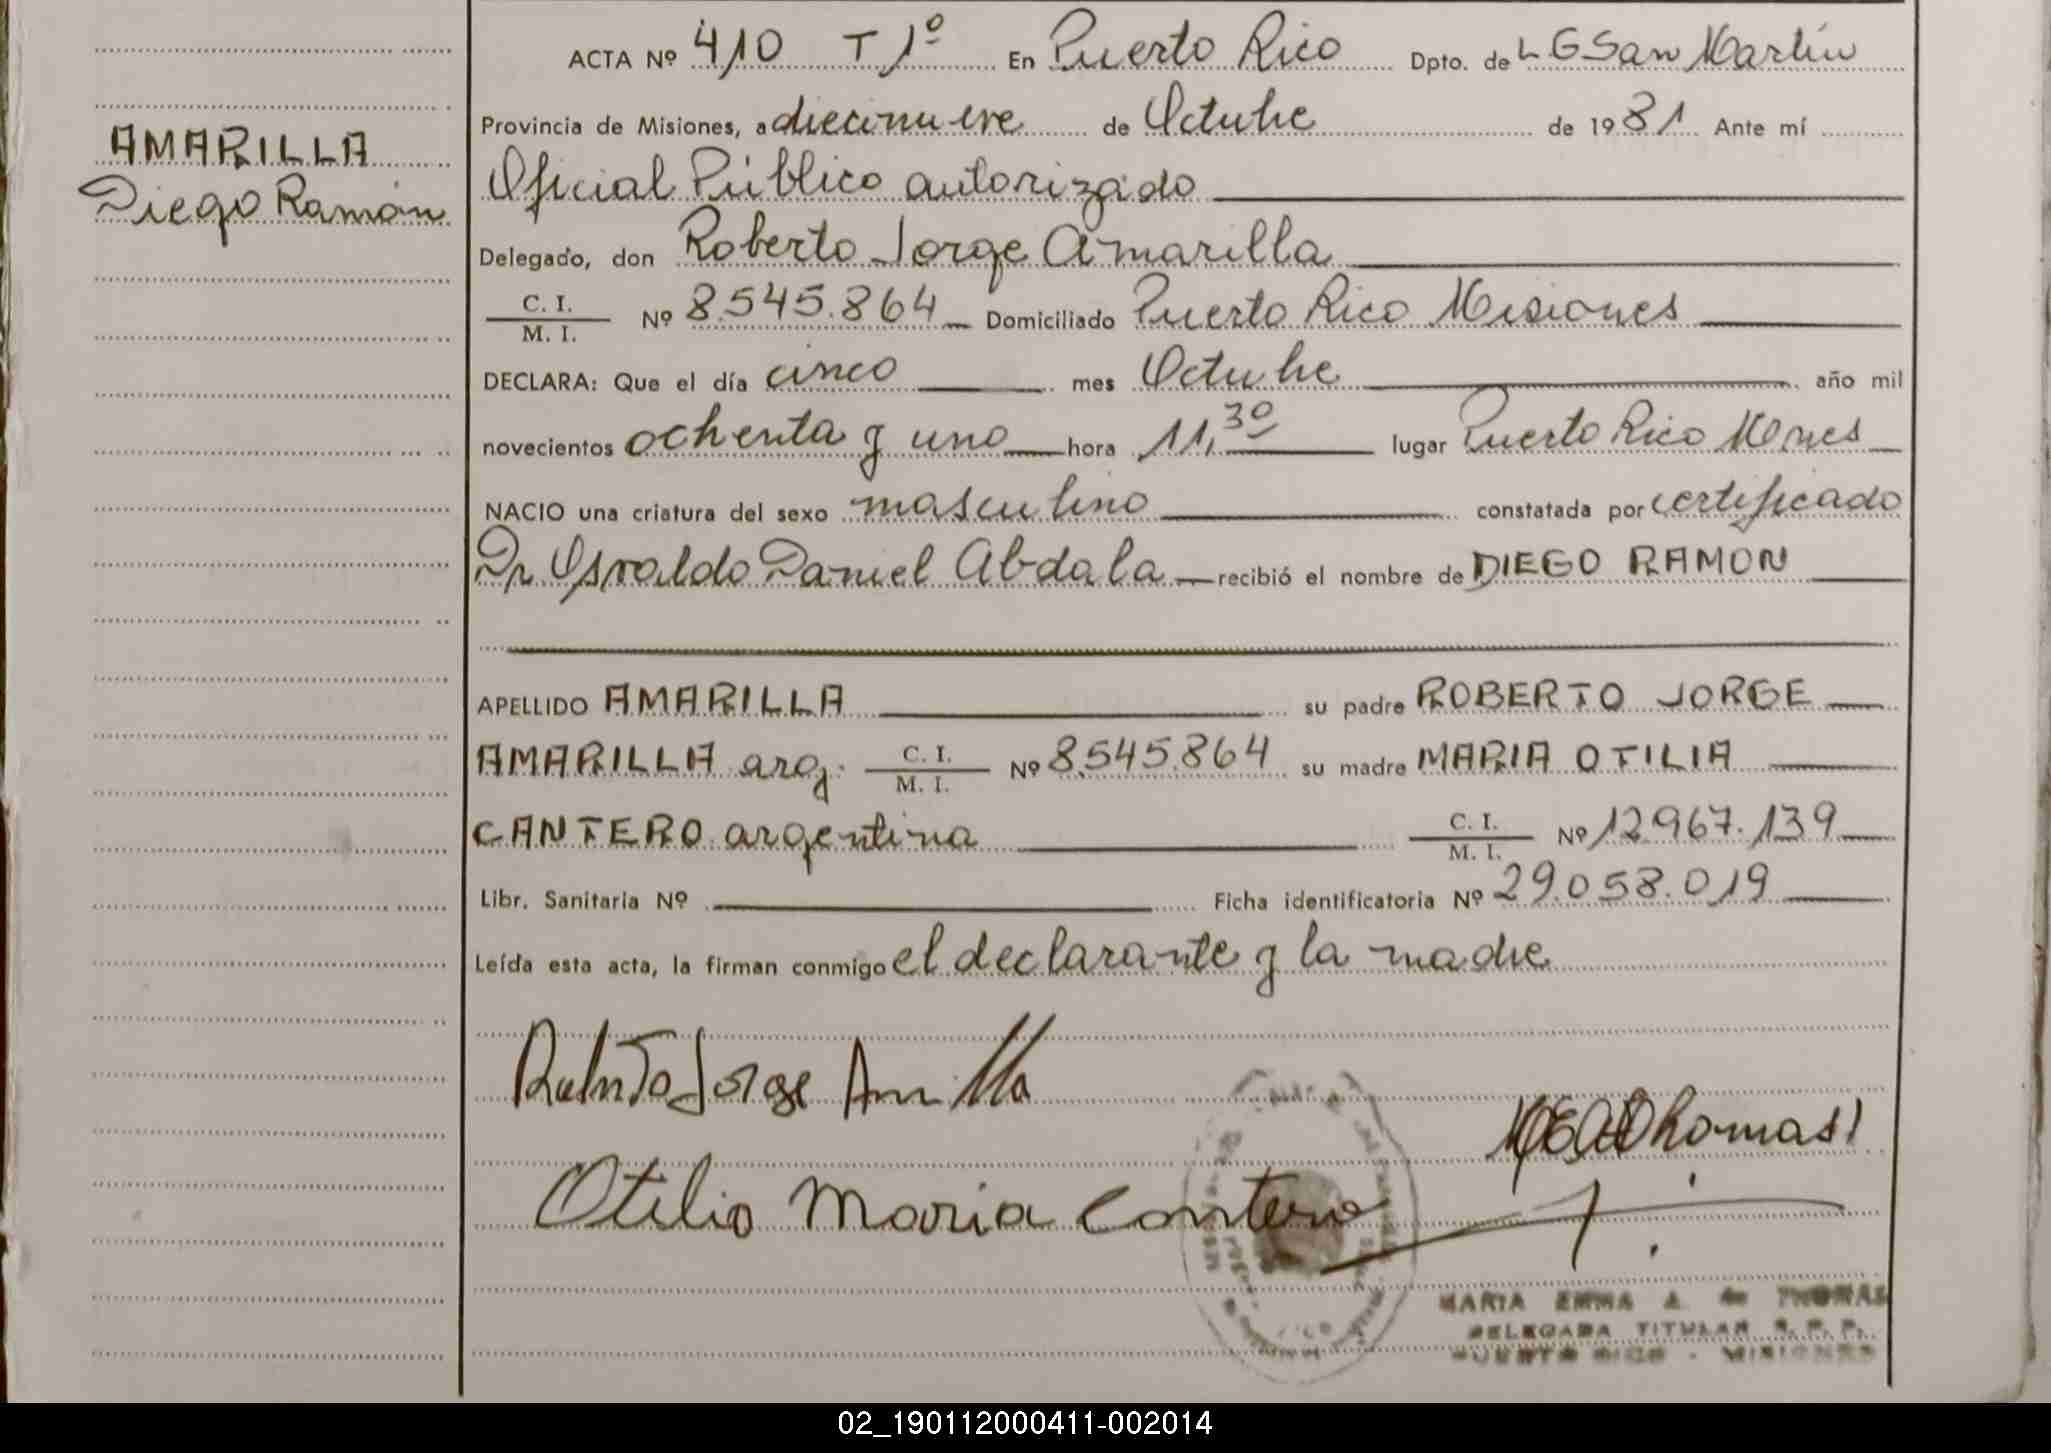 AMARILLA
Diego Ramón
ACTA Nº 410 T 1º En Puerto Rico Dpto. de L G San Martín
Provincia de Misiones, a diecinueve de Octubre de 1981 Ante mí
Oficial Público autorizado
Delegado, don Roberto Jorge Amarilla
C. I. / M. I. Nº 8.545.864 Domiciliado Puerto Rico Misiones
DECLARA: Que el día cinco mes Octubre año mil
novecientos ochenta y uno hora 11,30 lugar Puerto Rico Mones
NACIO una criatura del sexo masculino constatada por certificado
Dr Osvaldo Daniel Abdala recibió el nombre de DIEGO RAMON
APELLIDO AMARILLA su padre ROBERTO JORGE
AMARILLA arg. C. I. / M. I. Nº 8.545.864 su madre MARIA OTILIA
CANTERO argentina C. I. / M. I. Nº 12.967.139
Libr. Sanitaria Nº Ficha identificatoria Nº 29.058.019
Leída esta acta, la firman conmigo el declarante y la madre
Roberto Jorge Amarilla
Otilia Maria Cantero
MARIA EMMA A. de THOMAS
DELEGADA TITULAR R. P. P.
PUERTO RICO - MISIONES
02_190112000411-002014